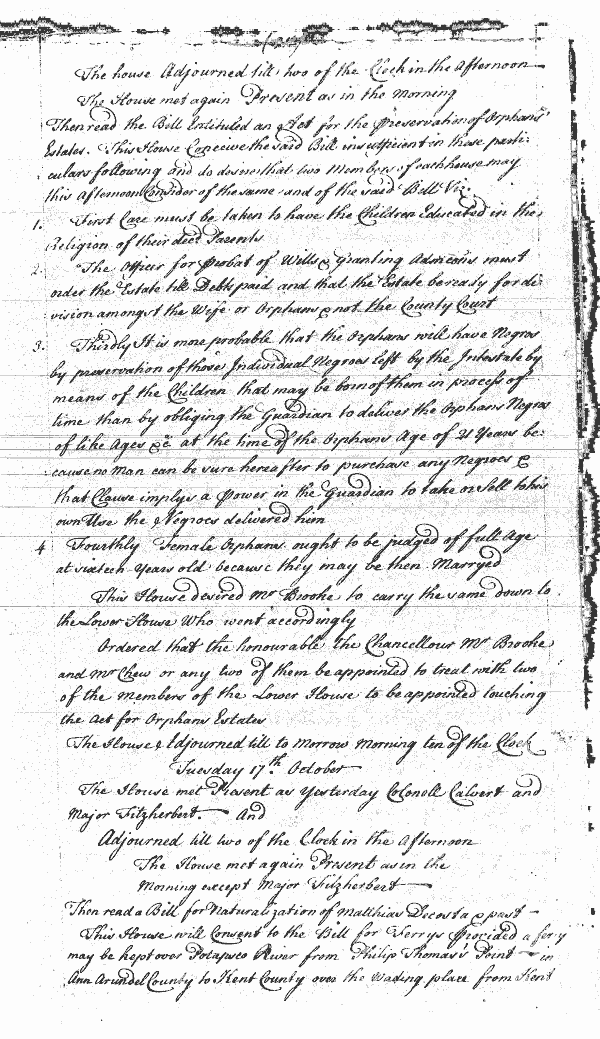 The house Adjourned till two of the Clock in the Afternoon
The House met again Present as in the Morning
Then read the Bill Entituled an Act for the Preservation of Orphans
Estates. This House Conceive the said Bill insufficient in those parti-
culars following and do desire that two Members of each house may
this Afternoon Consider of the same and of the said Bill Viz.
1. First Care must be taken to have the Children Educated in the
Religion of their decd Parents
2. The Officer for Probat of Wills & granting Admcons must
order the Estate till Debts paid and that the Estate be ready for di-
vision amongst the Wife or Orphans & not the County Court
3. Thirdly It is more probable that the Orphans will have Negros
by preservation of those Individual Negroes left by the Intestate by
means of the Children that may be born of them in process of
time than by obliging the Guardian to deliver the Orphans Negros
of like Ages &c at the time of the Orphans Age of 21 Years be-
cause no Man can be sure hereafter to purchase any Negroes &
that Clause implys a Power in the Guardian to take or sell to his
own Use the Negroes delivered him
4 Fourthly Female Orphans ought to be judged of full Age
at sixteen Years old because they may be then Marryed
This House desired Mr Brooke to carry the same down to
the Lower House Who went accordingly
Ordered that the honourable the Chancellour Mr Brooke
and Mr Chew or any two of them be appointed to treat with two
of the members of the Lower House to be appointed touching
the Act for Orphans Estates
The House Adjourned till to Morrow Morning ten of the Clock
Tuesday 17th October
The House met Present as Yesterday Colonell Calvert and
Major Fitzherbert. And
Adjourned till two of the Clock in the Afternoon
The House met again Present as in the
Morning except Major Fitzherbert
Then read a Bill for Naturalization of Matthias Decosta & past
This House will Consent to the Bill for Ferrys Provided a fery
may be kept over Potapsco River from Philip Thomas's Point in
Ann Arundel County to Kent County over the Wading place from Kent